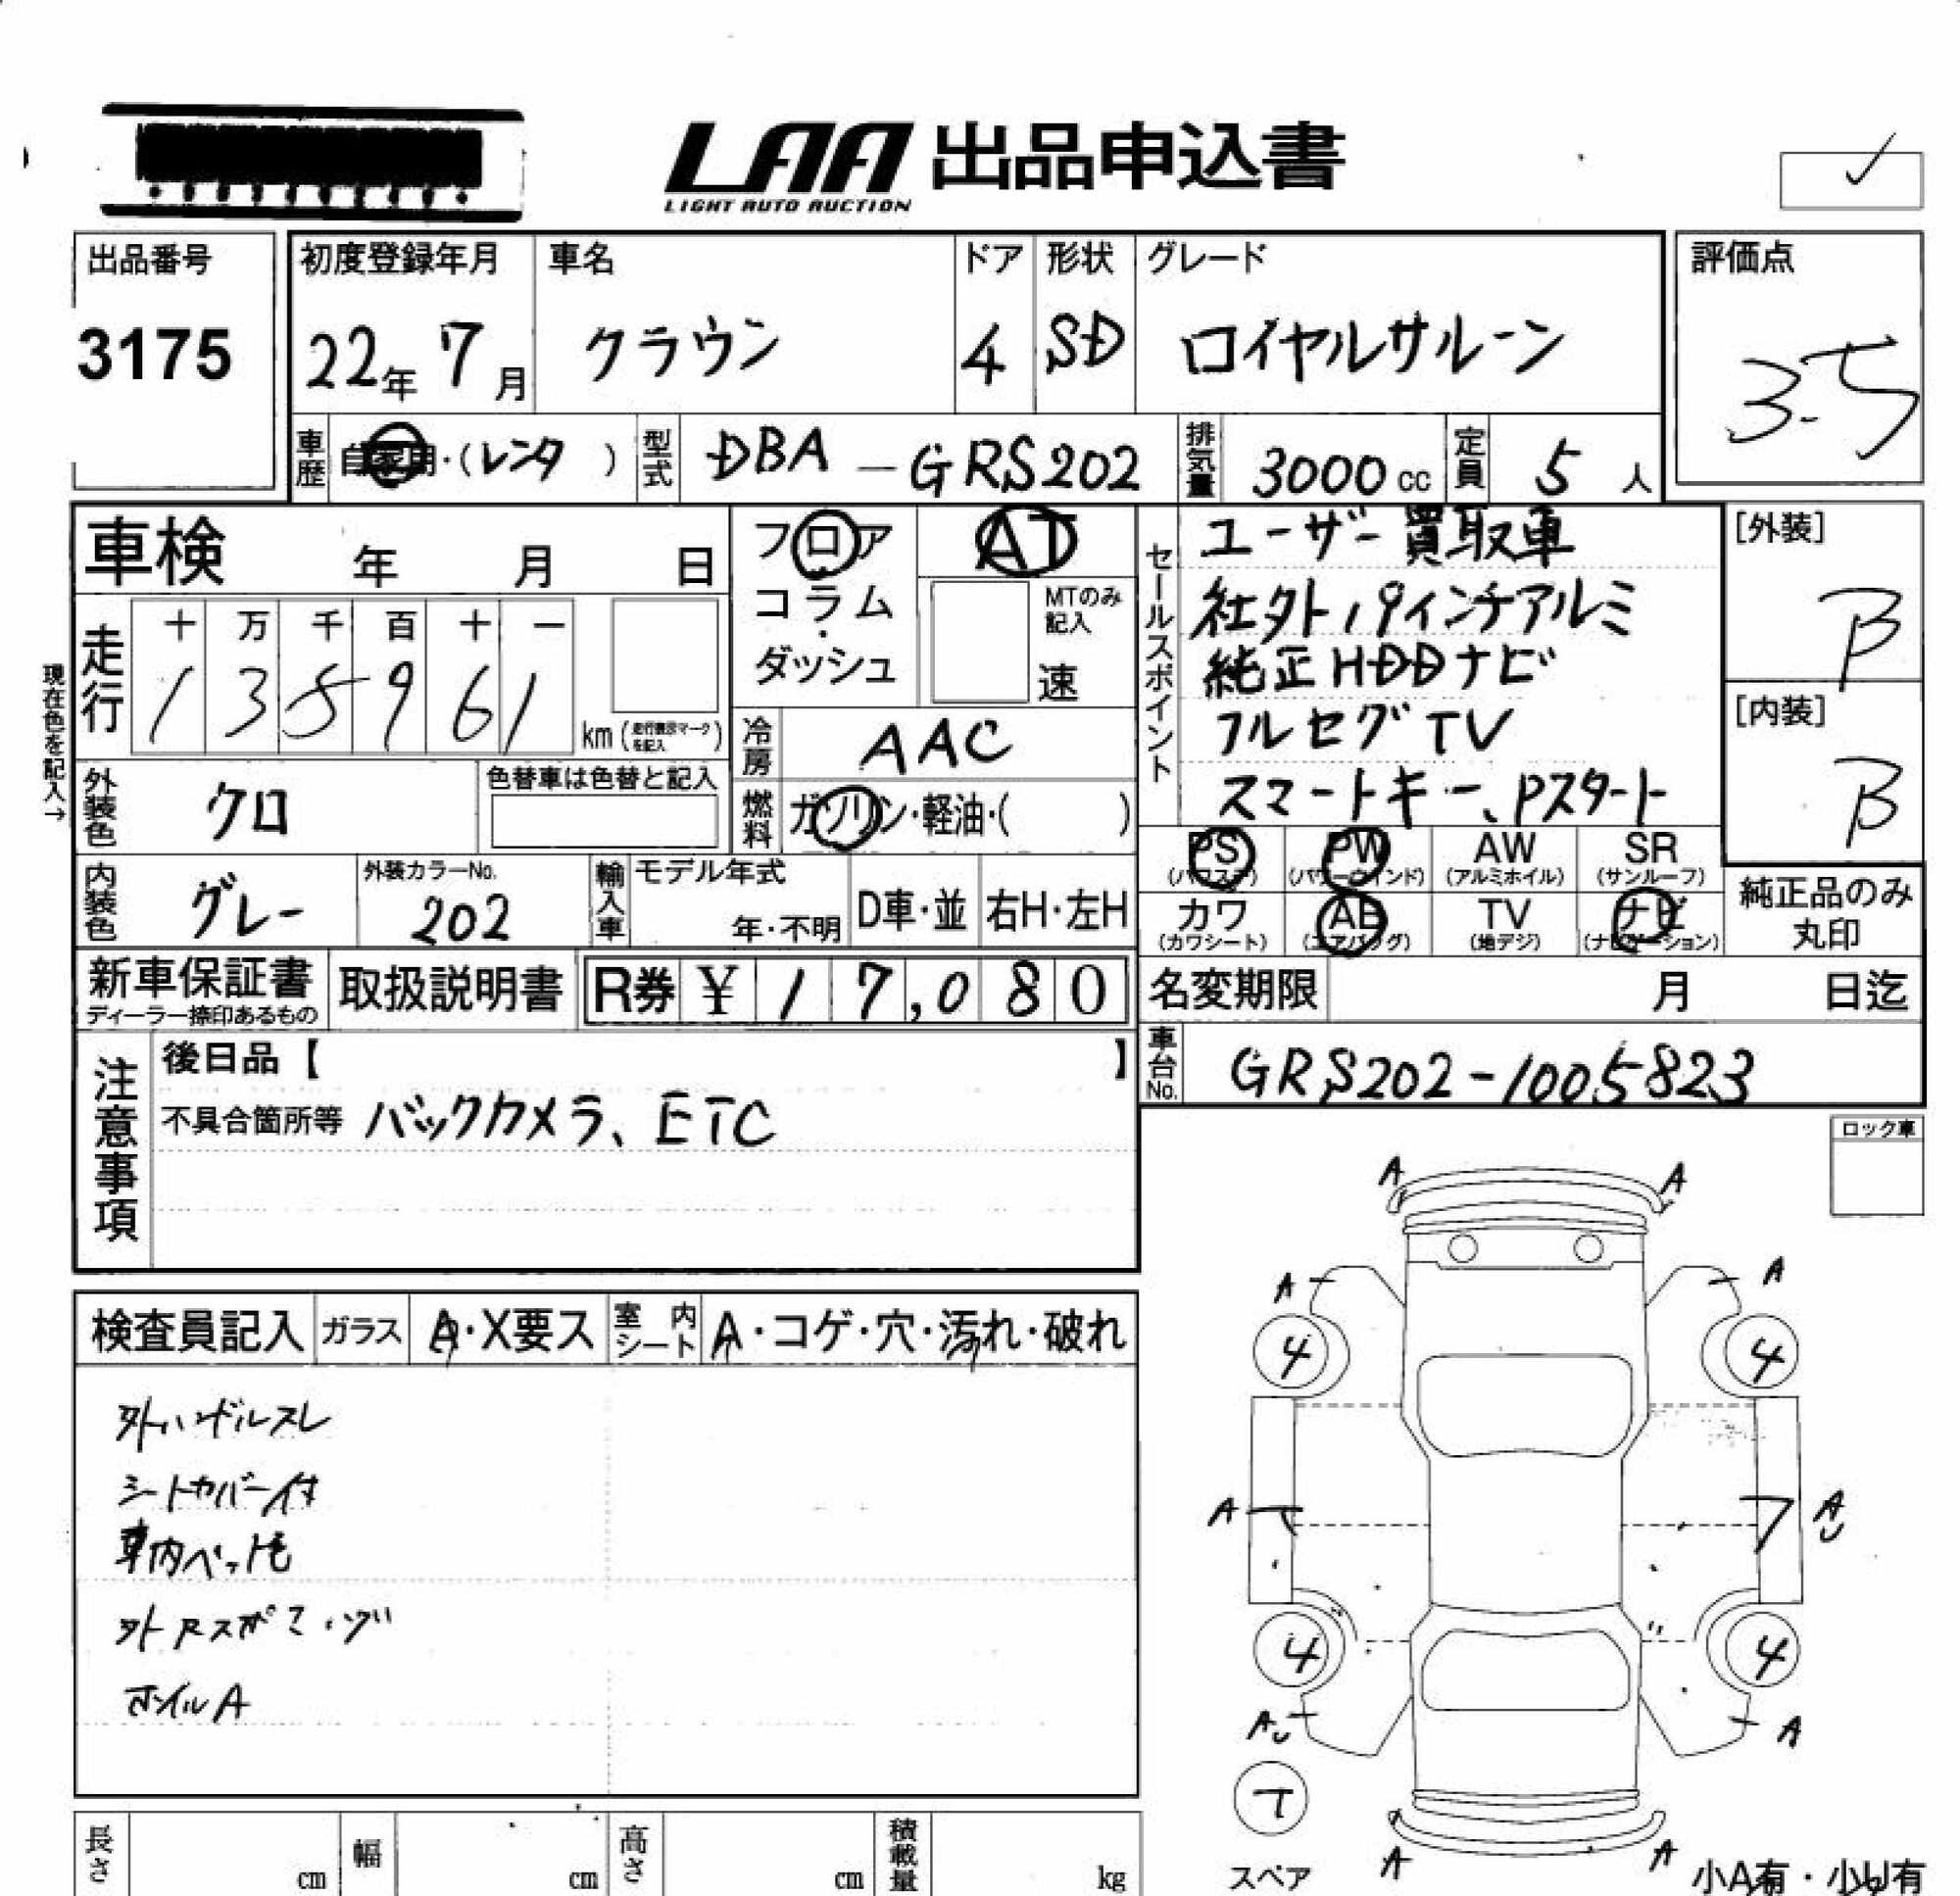 LAA 出品申込書
LIGHT AUTO AUCTION
出品番号
3175
初度登録年月
22年 7月
車名
クラウン
ドア
4
形状
SD
グレード
ロイヤルサルーン
評価点
3.5
車歴
自家用・(レンタ )
型式
DBA-GRS202
排気量
3000cc
定員
5人
車検 年 月 日
現在色を記入→
走行
十 万 千 百 十 一
1 3 5 9 6 1
km(走行表示マークを記入)
フロア
コラム
・
ダッシュ
AT
MTのみ
記入
速
冷房
AAC
燃料
ガソリン・軽油・( )
セールスポイント
ユーザー買取車
社外19インチアルミ
純正HDDナビ
フルセグTV
スマートキー、Pスタート
[外装]
B
[内装]
B
外装色
クロ
色替車は色替と記入
内装色
グレー
外装カラーNo.
202
輸入車
モデル年式
年・不明
D車・並
右H・左H
PS
(パワステ)
PW
(パワーウインド)
AW
(アルミホイル)
SR
(サンルーフ)
カワ
(カワシート)
AB
(エアバッグ)
TV
(地デジ)
ナビ
(ナビゲーション)
純正品のみ
丸印
新車保証書
ディーラー捺印あるもの
取扱説明書
R券 ¥ 17,080
名変期限 月 日迄
車台No.
GRS202-1005823
注意事項
後日品【 】
不具合箇所等 バックカメラ、ETC
ロック車
検査員記入
ガラス
A・X要ス
室内シート
A・コゲ・穴・汚れ・破れ
外ハンドルスレ
シートカバー付
車内ペット毛
ホイルA
A A
A A
4 4
A AU
4 4
AU A
T
スペア
A A
小A有・小U有
長さ cm
幅 cm
高さ cm
積載量 kg